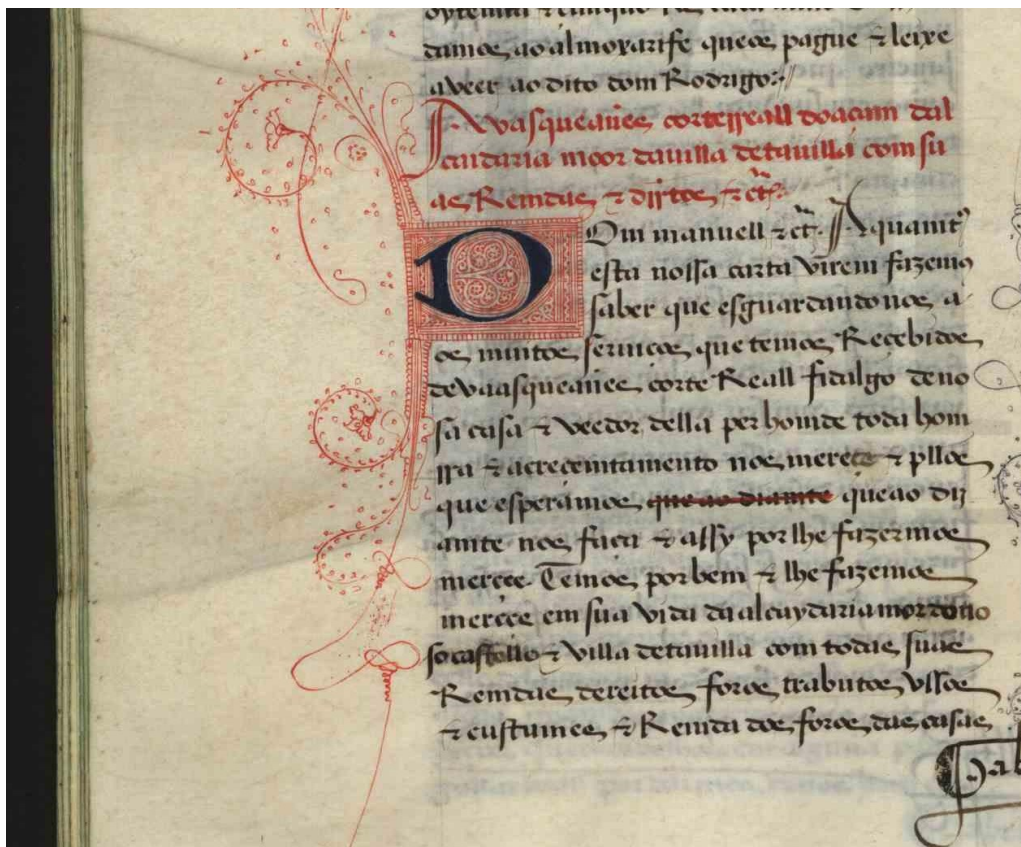 damos ao almoxarife que os pague & leixe
aveer ao dito dom Rodrigo://
A vasqueanes corterreall doacam dal
caidaria moor da villa de tavilla com su
as Remdas & dijtos & ct.ª
Dom manuell & ct.ª A quamtos
esta nossa carta virem fazemos
saber que esguardando nos a
os muitos servicos que temos Recebidos
de vaasqueanes corte Reall fidalgo de no
sa casa & veedor della per homde toda hom
rra & acrecemtamento nos merece & pllos
que esperamos que ao diamte que ao dij
amte nos faca & assy por lhe fazermos
merçee. Temos por bem & lhe fazemos
merçee em sua vida da alcaydaria mor do no
so castello & villa de tavilla com todas suas
Remdas dereitos foros trabutos vssos
& custumes & Remda dos foros das casas